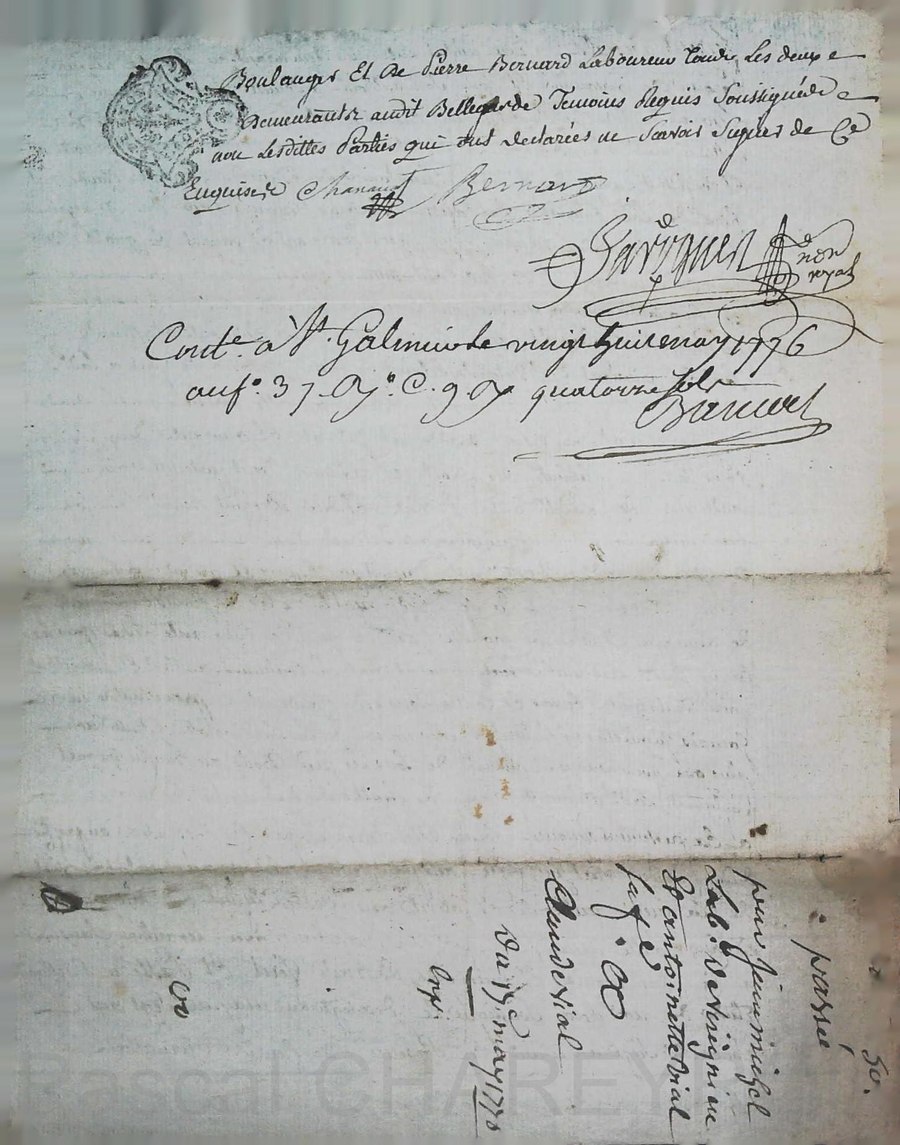 Boulanger Et De Pierre Bernard Laboureur tous Les deux
Demeurants audit Bellegarde Temoins Requis Soussignés
non Lesdittes Parties qui ont declarées ne Scavoir Signer de Ce
Enquises Chanaud Bernard
not royal
Cont.e à St. Galmier Le vingt huit may 1776
au f.o 37 R.o C. 9 quatorze sols
Barrioul
50.
passée
pour jean michel
Lab.r de Verigneu
Et antoinette vial
sa fe
Claude vial
Du 19e may 1776
Exp.
Pascal CHAREY